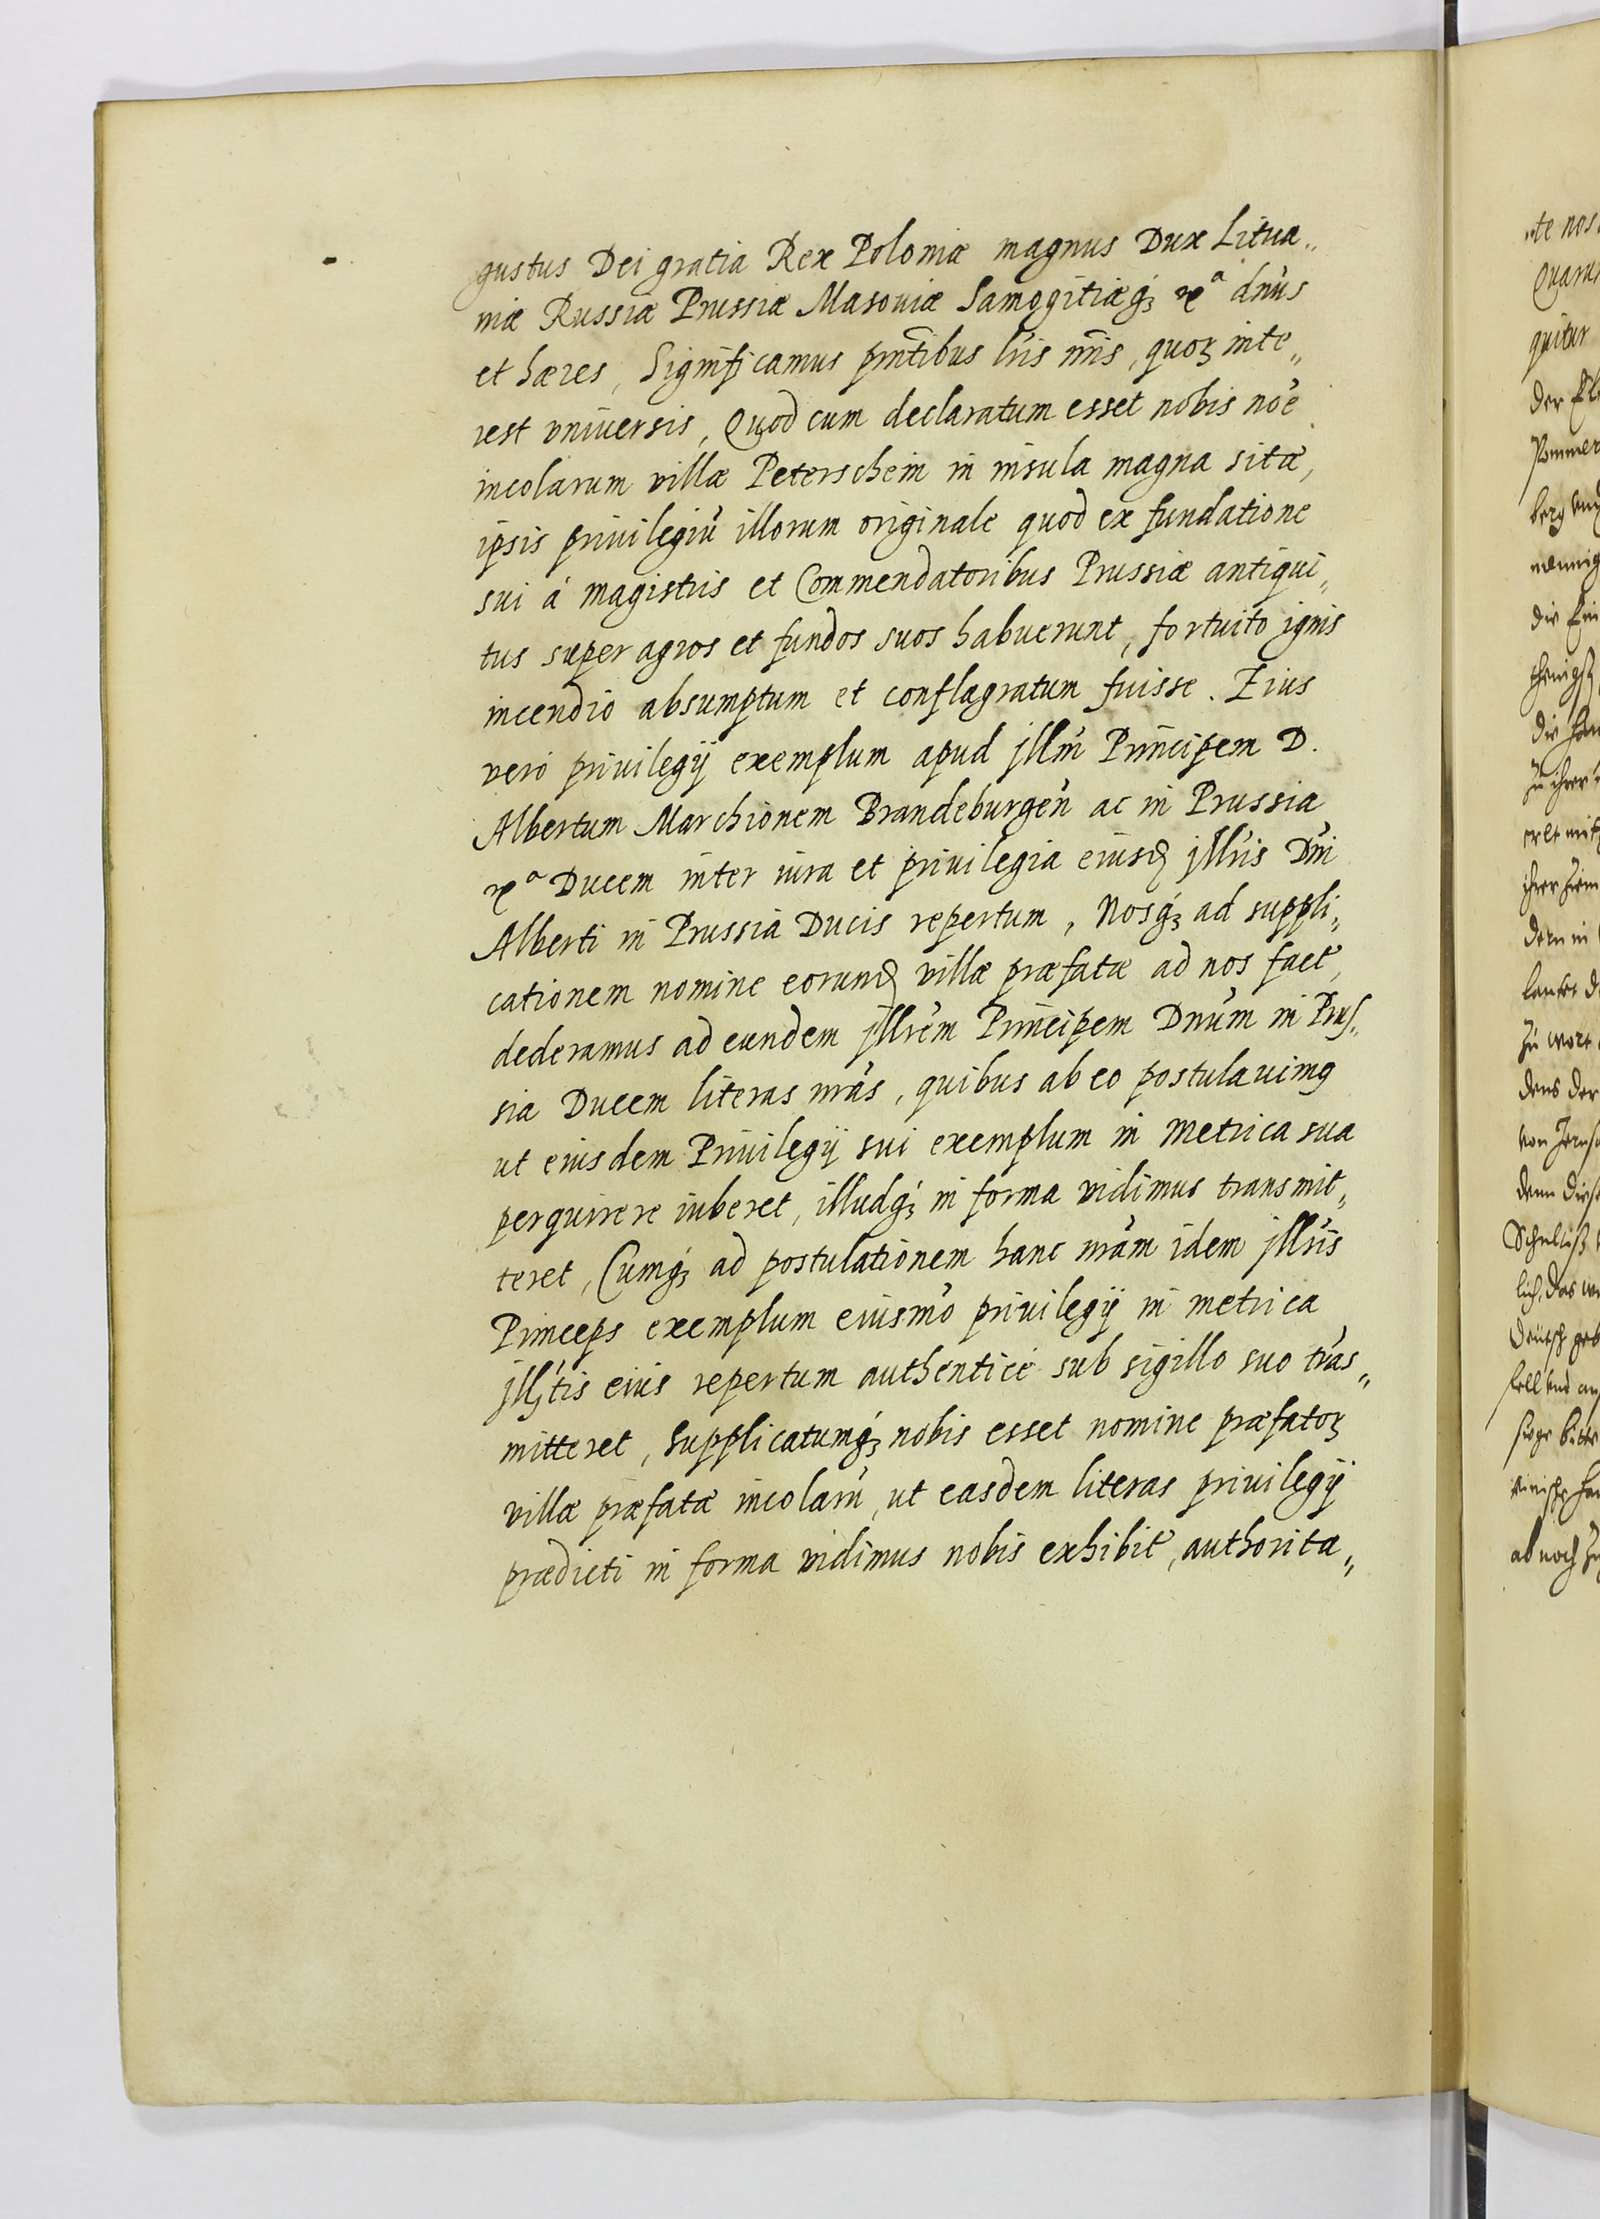 gustus Dei gratia Rex Poloniæ magnus Dux Litua„
niæ Russiæ Prussiæ Masouiæ Samogitiæq́ꝫ ꝛcª dn̄us
et hæres, Significamus pn̄tibus lr̄is nr̄is, quoꝝ inte„
rest vniversis, Quod cum declaratum esset nobis no͞e
incolarum villæ Peterschein in insula magna sitæ,
ipsis privilegiū illorum originale quod ex fundatione
sui á magistris et Commendatoribus Prussiæ antiqui„
tus super agros et fundos suos habuerunt, fortuito ignis
incendio absumptum et conflagratum fuisse. Eius
veró privilegij exemplum apud jllm̄ Principem D.
Albertum Marchionem Brandeburgen̄ ac in Prussia
ꝛcª Ducem inter iura et privilegia eiusd jllr̄is Dn̄i
Alberti in Prussia Ducis repertum, Nosq́ꝫ ad suppli„
cationem nomine eorund villæ præfatæ ad nos fact̄,
dederamus ad eundem jllre̅m Principem Dnu̅m in Prus„
sia Ducem literas nrās, quibus ab eo postulauimꝰ
ut eiusdem Privilegij sui exemplum in Metrica sua
perquirere iuberet, illudq́ꝫ in forma vidimus transmit„
teret, Cumq́ꝫ ad postulationem hanc nrām idem jllr̄is
Princeps exemplum eiusmo̅ privilegij in metrica
jllt̄is eius repertum authenticé sub sigillo suo trās„
mitteret, Supplicatumq́ꝫ nobis esset nomine præfatoꝝ
villæ præfatæ incolarū, ut easdem literas privilegij
prædicti in forma vidimus nobis exhibit̄, authorita„